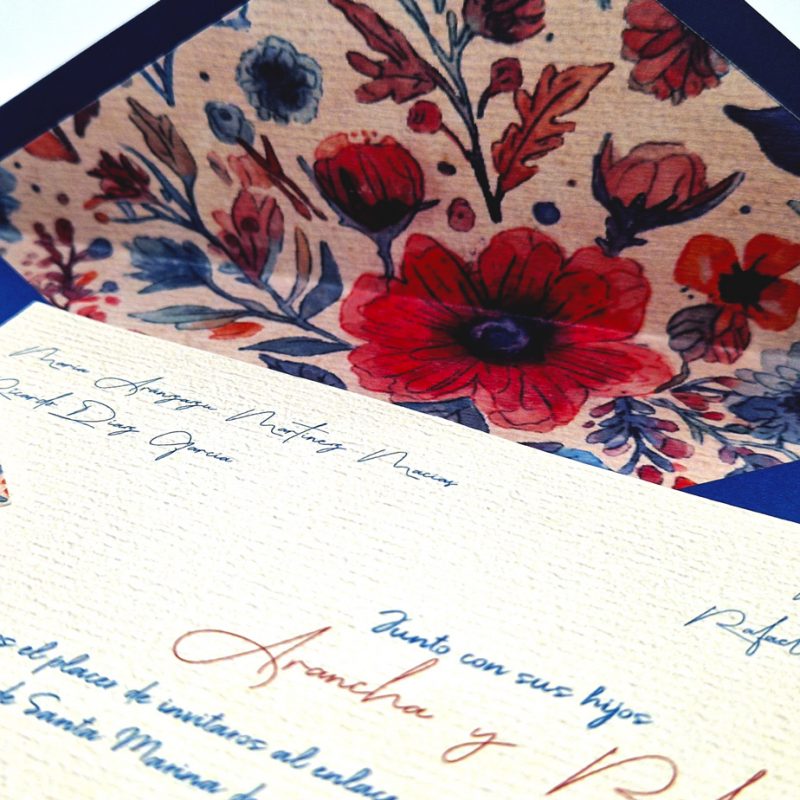 María Aranzazu Martínez Macías
Ricardo Díaz García
Rafael
Junto con sus hijos
Arancha y
el placer de invitaros al enlace
de Santa Marina